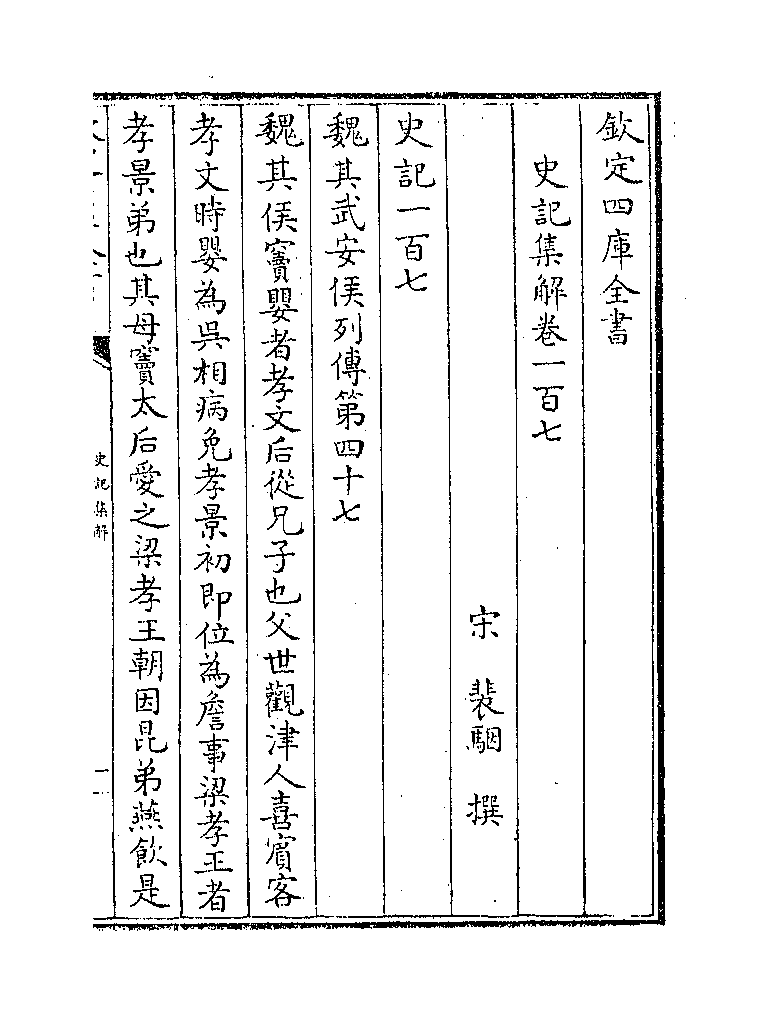 欽定四庫全書
史記集解卷一百七
宋　裴駰　撰
史記一百七
魏其武安侯列傳第四十七
魏其侯竇嬰者孝文后從兄子也父世觀津人喜賓客
孝文時嬰為吳相病免孝景初即位為詹事梁孝王者
孝景弟也其母竇太后愛之梁孝王朝因昆弟燕飲是
史記集解
一